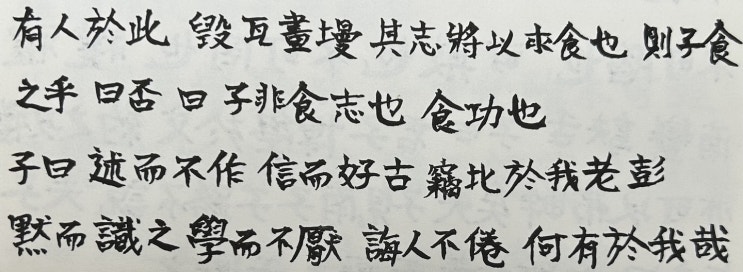 有人於此 毀瓦畫墁 其志將以求食也 則子食
之乎 曰否 曰 子非食志也 食功也
子曰 述而不作 信而好古 竊比於我老彭
默而識之 學而不厭 誨人不倦 何有於我哉